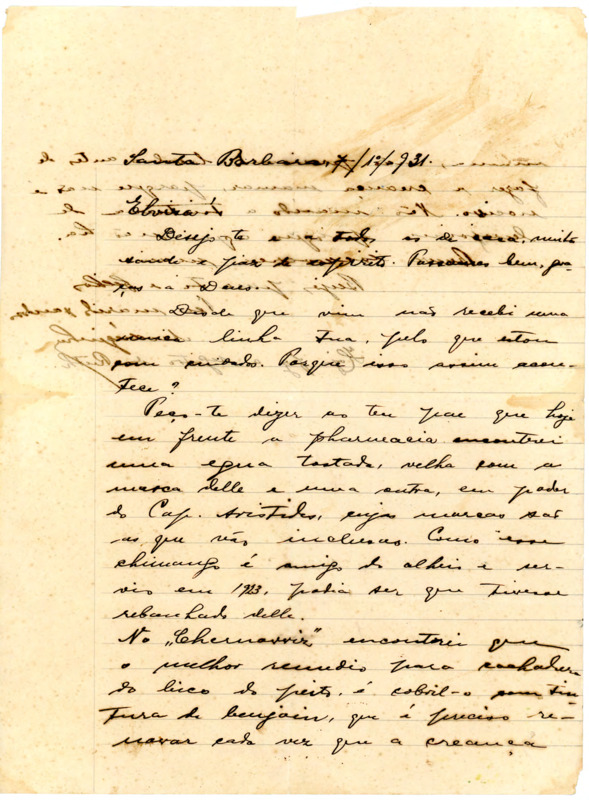 Santa Barbara, 7/12/931.
Elvira!
Desejo-te e a todos os de casa, muita
saude e paz de espirito. Passamos bem, gra-
ças a Deus.
Desde que vim não recebi uma
unica linha tua, pelo que estou
com cuidados. Porque isso assim acon-
tece?
Peço-te dizer ao teu pae que hoje
em frente a pharmacia encontrei
uma egua tostada, velha com a
marca delle e uma outra, em poder
do Cap. Aristides, cujas marcas são
as que vão inclusas. Como esse
chimango é amigo do alheio e ser-
viu em 1923, podia ser que tivesse
rebanhado delle.
No "Chernoviz" encontrei que
o melhor remedio para rachadura
do bico do peito, é cobril-o com tin-
tura de benjoin, que é preciso re-
novar cada vez que a creança